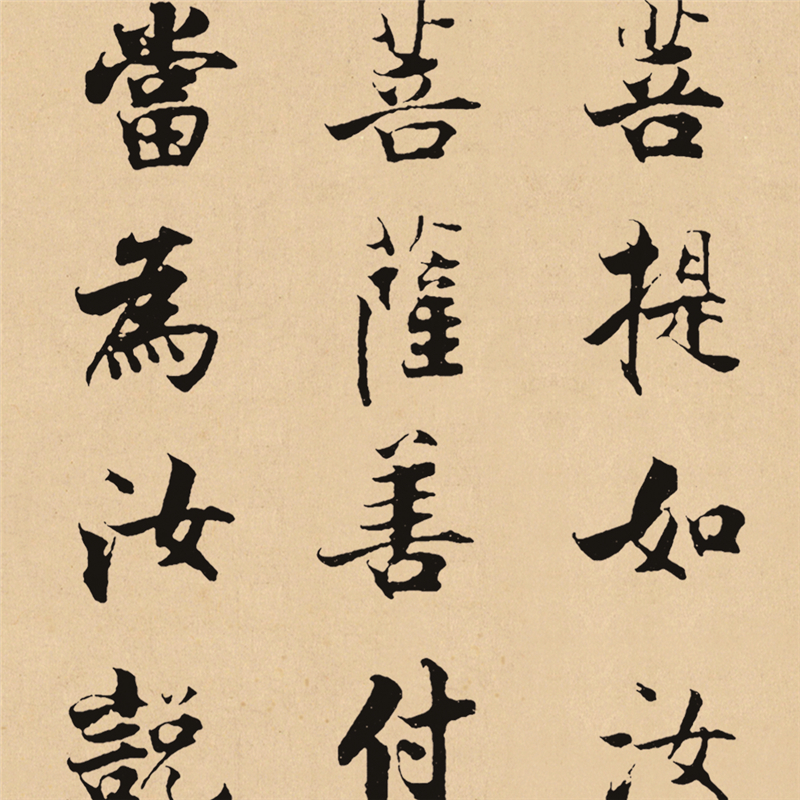 菩提如汝
菩薩善付
當為汝説